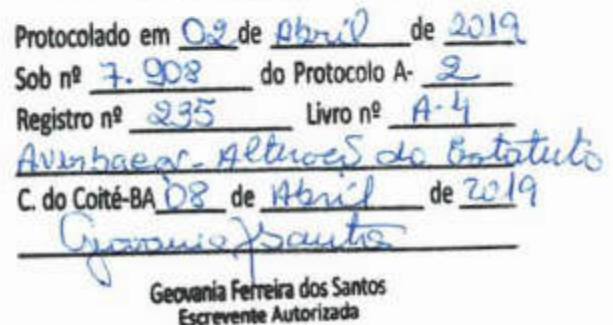 Protocolado em 02 de Abril de 2019
Sob nº 7.908 do Protocolo A- 2
Registro nº 235 Livro nº A-4
Averbação - Alteração do Estatuto
C. do Coité-BA 08 de Abril de 2019
Geovania F Santos
Geovania Ferreira dos Santos
Escrevente Autorizada